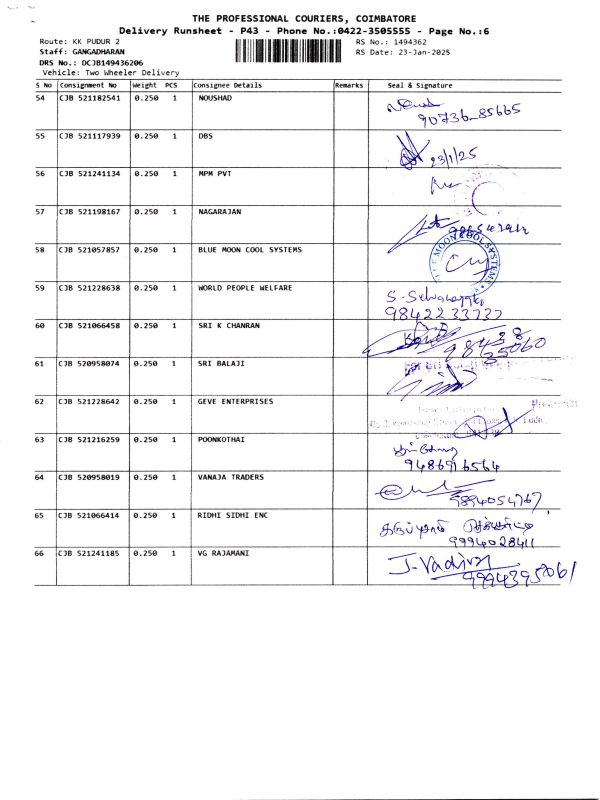 THE PROFESSIONAL COURIERS, COIMBATORE
Delivery Runsheet - P43 - Phone No.:0422-3505555 - Page No.:6
Route: KK PUDUR 2 RS No.: 1494362
Staff: GANGADHARAN RS Date: 23-Jan-2025
DRS No.: DCJB149436206
Vehicle: Two Wheeler Delivery
S No Consignment No Weight PCS Consignee Details Remarks Seal & Signature
54 CJB 521182541 0.250 1 NOUSHAD
90736-85665
55 CJB 521117939 0.250 1 DBS
23/1/25
56 CJB 521241134 0.250 1 MPM PVT
57 CJB 521198167 0.250 1 NAGARAJAN
58 CJB 521057857 0.250 1 BLUE MOON COOL SYSTEMS
BLUE MOON COOL SYSTEMS
59 CJB 521228638 0.250 1 WORLD PEOPLE WELFARE
98422 33737
60 CJB 521066458 0.250 1 SRI K CHANRAN
61 CJB 520958074 0.250 1 SRI BALAJI
62 CJB 521228642 0.250 1 GEVE ENTERPRISES
63 CJB 521216259 0.250 1 POONKOTHAI
9486916564
64 CJB 520958019 0.250 1 VANAJA TRADERS
9894054767
65 CJB 521066414 0.250 1 RIDHI SIDHI ENC
9994028411
66 CJB 521241185 0.250 1 VG RAJAMANI
J. Vadivel
9994395061